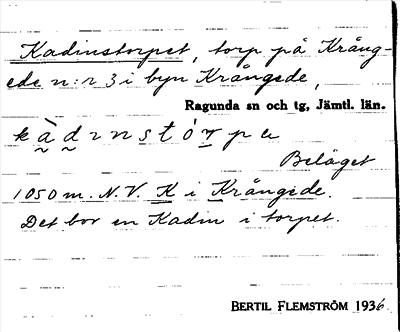 Kadinstorpet, torp på Krång-
ede n:r 3 i byn Krångede,
Ragunda sn och tg, Jämtl. län.
kàdınstór̠pe
Beläget
1050 m. N.V. K i Krångede.
Det bor en Kadin i torpet.
BERTIL FLEMSTRÖM 1936.